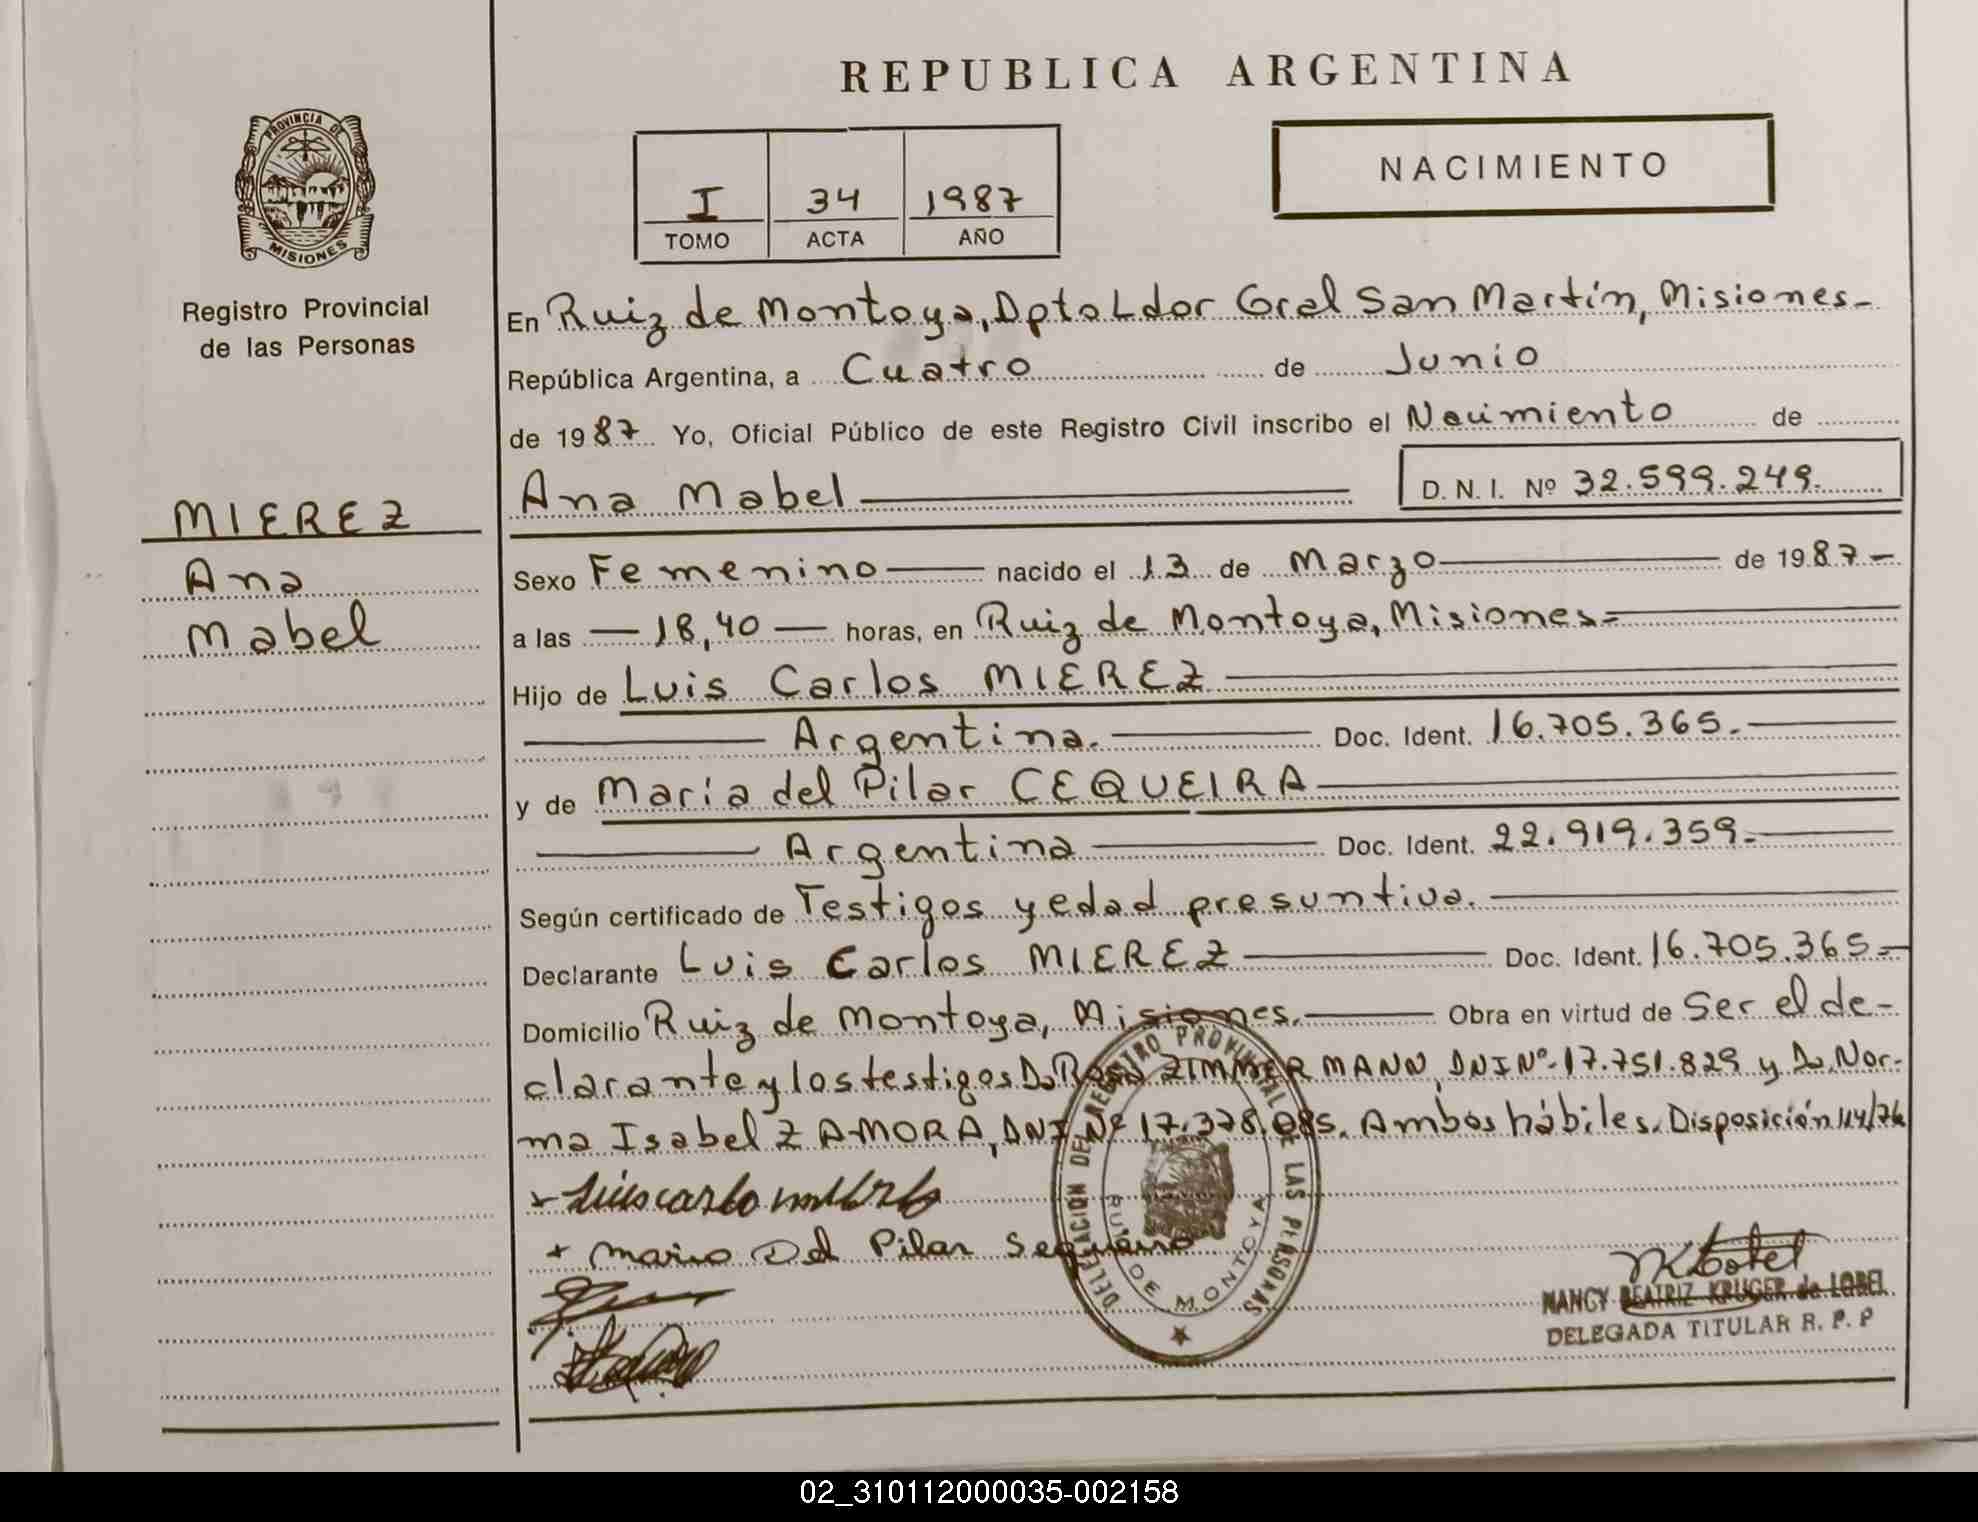 REPUBLICA ARGENTINA
PROVINCIA DE
MISIONES
Registro Provincial
de las Personas
I 34 1987
TOMO ACTA AÑO
NACIMIENTO
En Ruiz de Montoya, Dpto Ldor Gral San Martín, Misiones-
República Argentina, a Cuatro de Junio
de 1987 Yo, Oficial Público de este Registro Civil inscribo el Nacimiento de
Ana Mabel D. N. I. Nº 32.599.249.
MIEREZ
Ana
Mabel
Sexo Femenino nacido el 13 de Marzo de 1987-
a las 18,40 horas, en Ruiz de Montoya, Misiones=
Hijo de Luis Carlos MIEREZ
Argentina. Doc. Ident. 16.705.365.
y de María del Pilar CEQUEIRA
Argentina Doc. Ident. 22.919.359.
Según certificado de Testigos y edad presuntiva.
Declarante Luis Carlos MIEREZ Doc. Ident. 16.705.365=
Domicilio Ruiz de Montoya, Misiones. Obra en virtud de Ser el de-
clarante y los testigos Da. Rosa ZIMMERMANN, DNI Nº 17.751.829 y Da. Nor-
ma Isabel ZAMORA, DNI Nº 17.378.085. Ambos hábiles. Disposición 114/76
+ Maria Del Pilar
DELEGACION DEL REGISTRO PROVINCIAL DE LAS PERSONAS
RUIZ DE MONTOYA
NANCY BEATRIZ KRUGER de LOBEL
DELEGADA TITULAR R. P. P
02_310112000035-002158